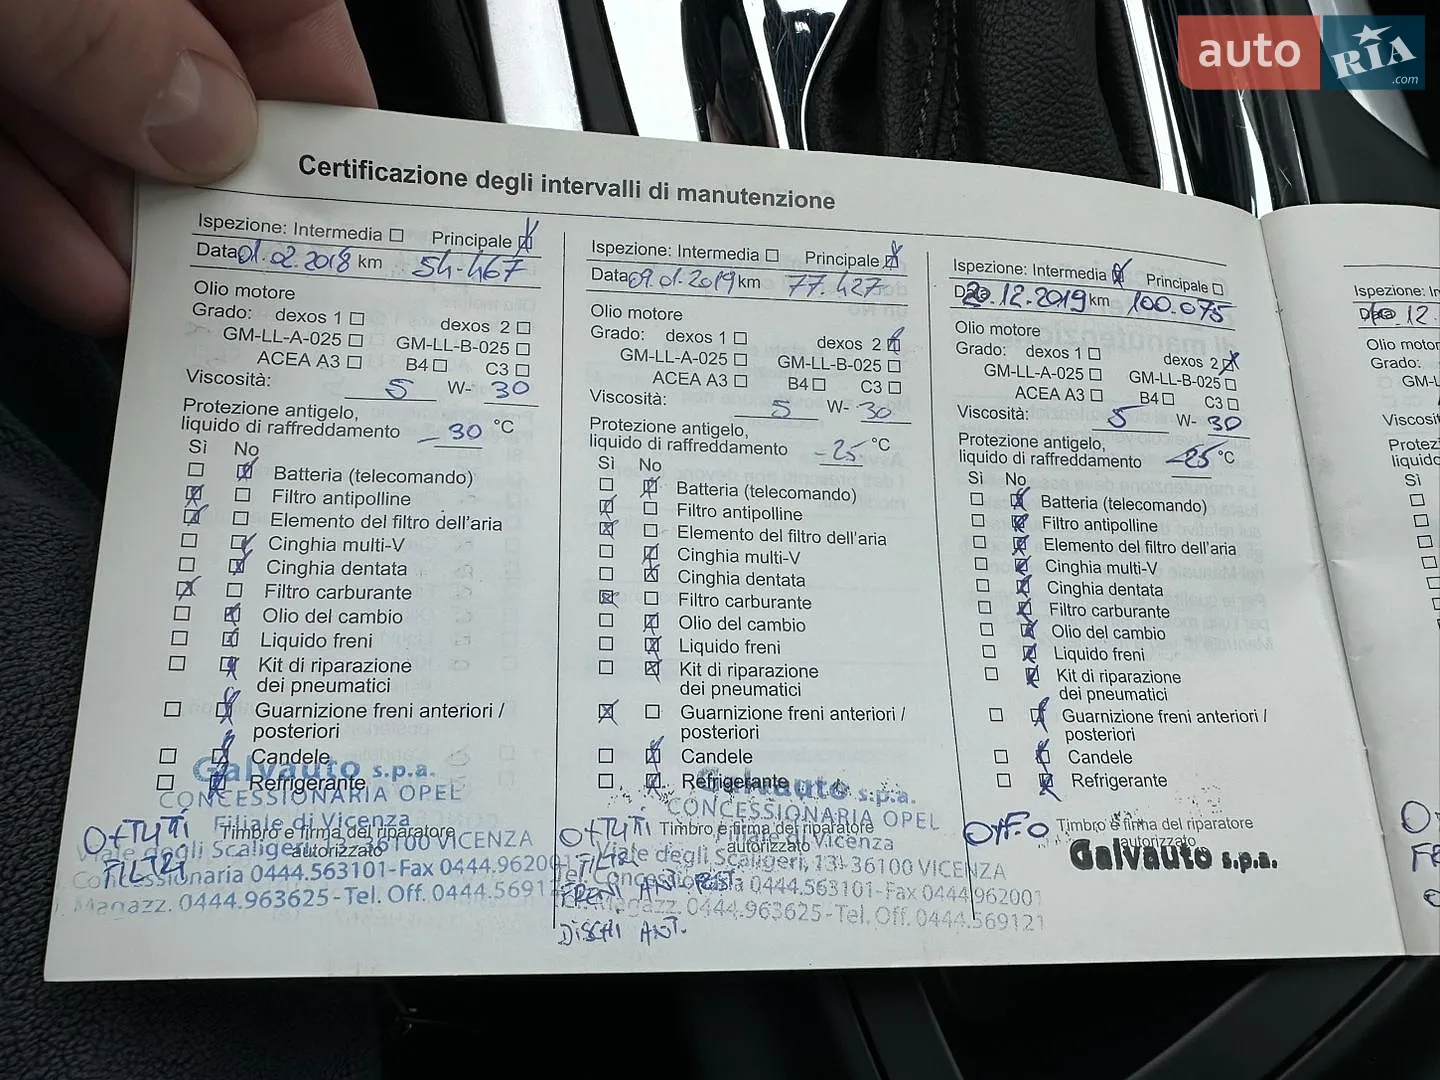 auto RIA .com
Certificazione degli intervalli di manutenzione
Ispezione: Intermedia Principale
Data 01.02.2018 km 54.467
Olio motore
Grado: dexos 1 dexos 2
GM-LL-A-025 GM-LL-B-025
ACEA A3 B4 C3
Viscosità: 5 W- 30
Protezione antigelo,
liquido di raffreddamento -30 °C
Sì No
Batteria (telecomando)
Filtro antipolline
Elemento del filtro dell'aria
Cinghia multi-V
Cinghia dentata
Filtro carburante
Olio del cambio
Liquido freni
Kit di riparazione
dei pneumatici
Guarnizione freni anteriori /
posteriori
Candele
Refrigerante
Galvauto s.p.a.
CONCESSIONARIA OPEL
Filiale di Vicenza
Timbro e firma del riparatore
autorizzato
Viale degli Scaligeri, 13 36100 VICENZA
Concessionaria 0444.563101-Fax 0444.962001
Magazz. 0444.963625-Tel. Off. 0444.569121
O+TUTTI
FILTRI
Ispezione: Intermedia Principale
Data 09.01.2019 km 77.427
Olio motore
Grado: dexos 1 dexos 2
GM-LL-A-025 GM-LL-B-025
ACEA A3 B4 C3
Viscosità: 5 W- 30
Protezione antigelo,
liquido di raffreddamento -25 °C
Sì No
Batteria (telecomando)
Filtro antipolline
Elemento del filtro dell'aria
Cinghia multi-V
Cinghia dentata
Filtro carburante
Olio del cambio
Liquido freni
Kit di riparazione
dei pneumatici
Guarnizione freni anteriori /
posteriori
Candele
Refrigerante
Galvauto s.p.a.
CONCESSIONARIA OPEL
Filiale di Vicenza
Timbro e firma del riparatore
autorizzato
Viale degli Scaligeri, 13 - 36100 VICENZA
Tel. Concessionaria 0444.563101-Fax 0444.962001
Magazz. 0444.963625-Tel. Off. 0444.569121
O+TUTTI
FILTRI
FRENI ANT. POST
DISCHI ANT.
Ispezione: Intermedia Principale
Data 20.12.2019 km 100.075
Olio motore
Grado: dexos 1 dexos 2
GM-LL-A-025 GM-LL-B-025
ACEA A3 B4 C3
Viscosità: 5 W- 30
Protezione antigelo,
liquido di raffreddamento -25 °C
Sì No
Batteria (telecomando)
Filtro antipolline
Elemento del filtro dell'aria
Cinghia multi-V
Cinghia dentata
Filtro carburante
Olio del cambio
Liquido freni
Kit di riparazione
dei pneumatici
Guarnizione freni anteriori /
posteriori
Candele
Refrigerante
Timbro e firma del riparatore
autorizzato
Galvauto s.p.a.
Ispezione: In
12.
Olio motor
Grado:
GM-L
Viscosit
Protez
liquido
Sì